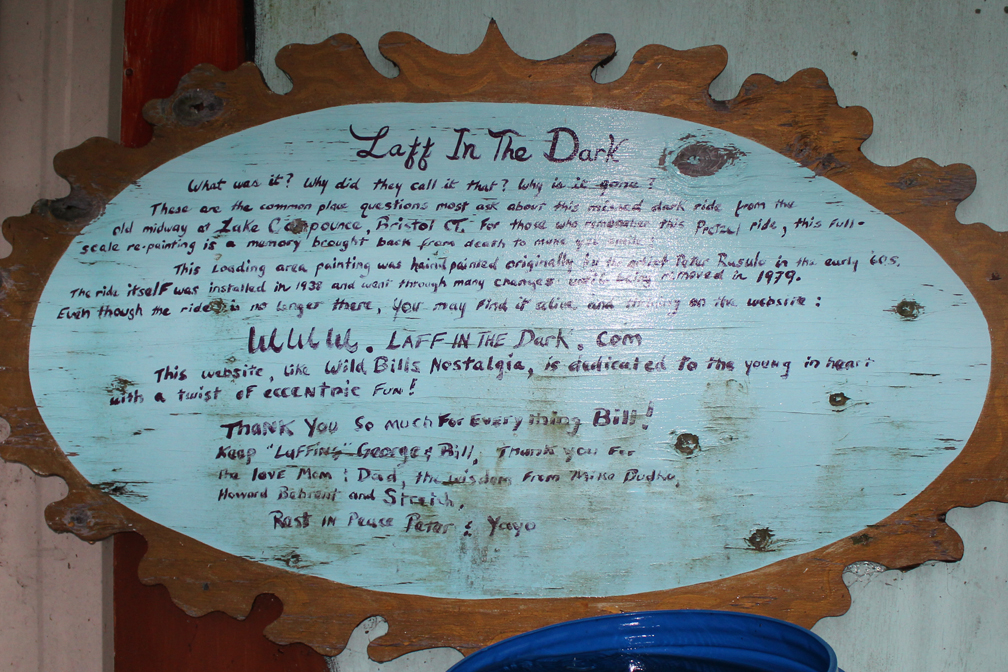 Laff In The Dark
What was it? Why did they call it that? Why is it gone?
These are the common place questions most ask about this missed dark ride from the
old midway at Lake Compounce, Bristol CT. For those who remember this Pretzel ride, this full-
scale re-painting is a memory brought back from death to make you smile!
This Loading area painting was hand painted originally by the artist Peter Rusulo in the early 60s.
The ride itself was installed in 1938 and went through many changes until being removed in 1979.
Even though the ride is no longer there, you may find it alive and thriving on the website:
WWW. LAFF IN THE Dark. com
This website, like Wild Bills Nostalgia, is dedicated to the young in heart
with a twist of eccentric Fun!
Thank You So much For Everything Bill!
Keep "Laffing" George & Bill, Thank you For
the love Mom & Dad, the wisdom from Mike Budko,
Howard Behrent and
Rest in Peace Peter & Yayo